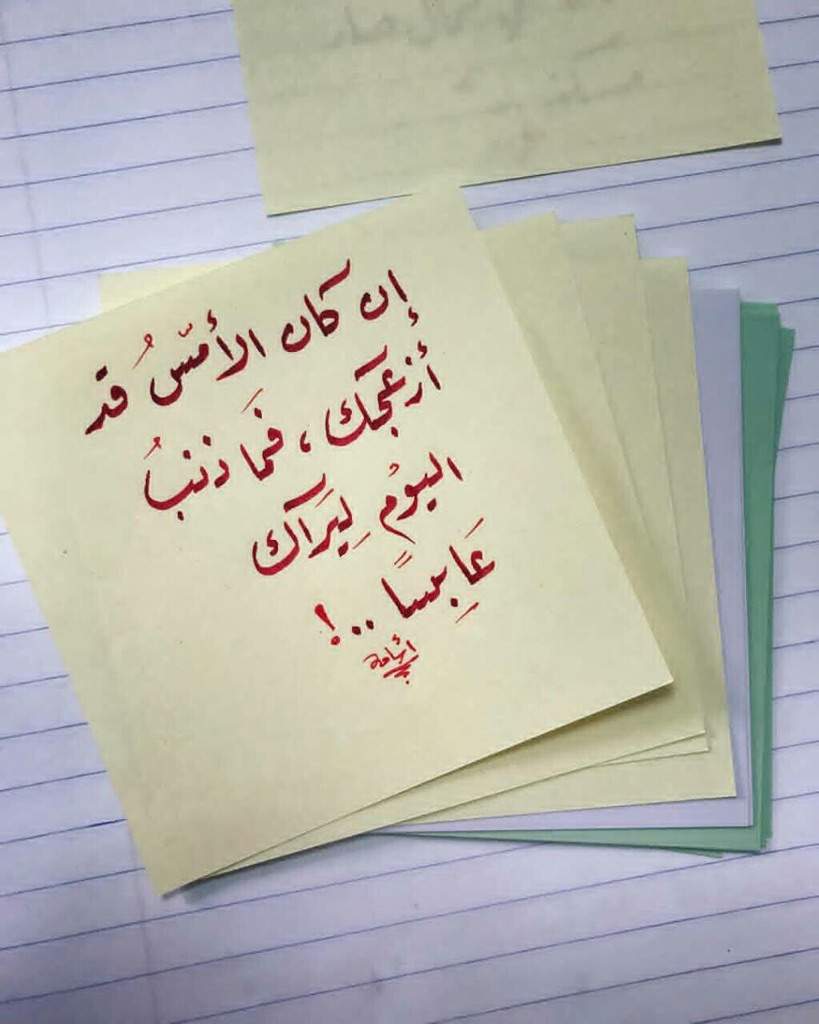 إن كان الأمسُ قد
أزعجك، فَما ذنبُ
اليومُ لِيَراك
عَابِسًا ..!